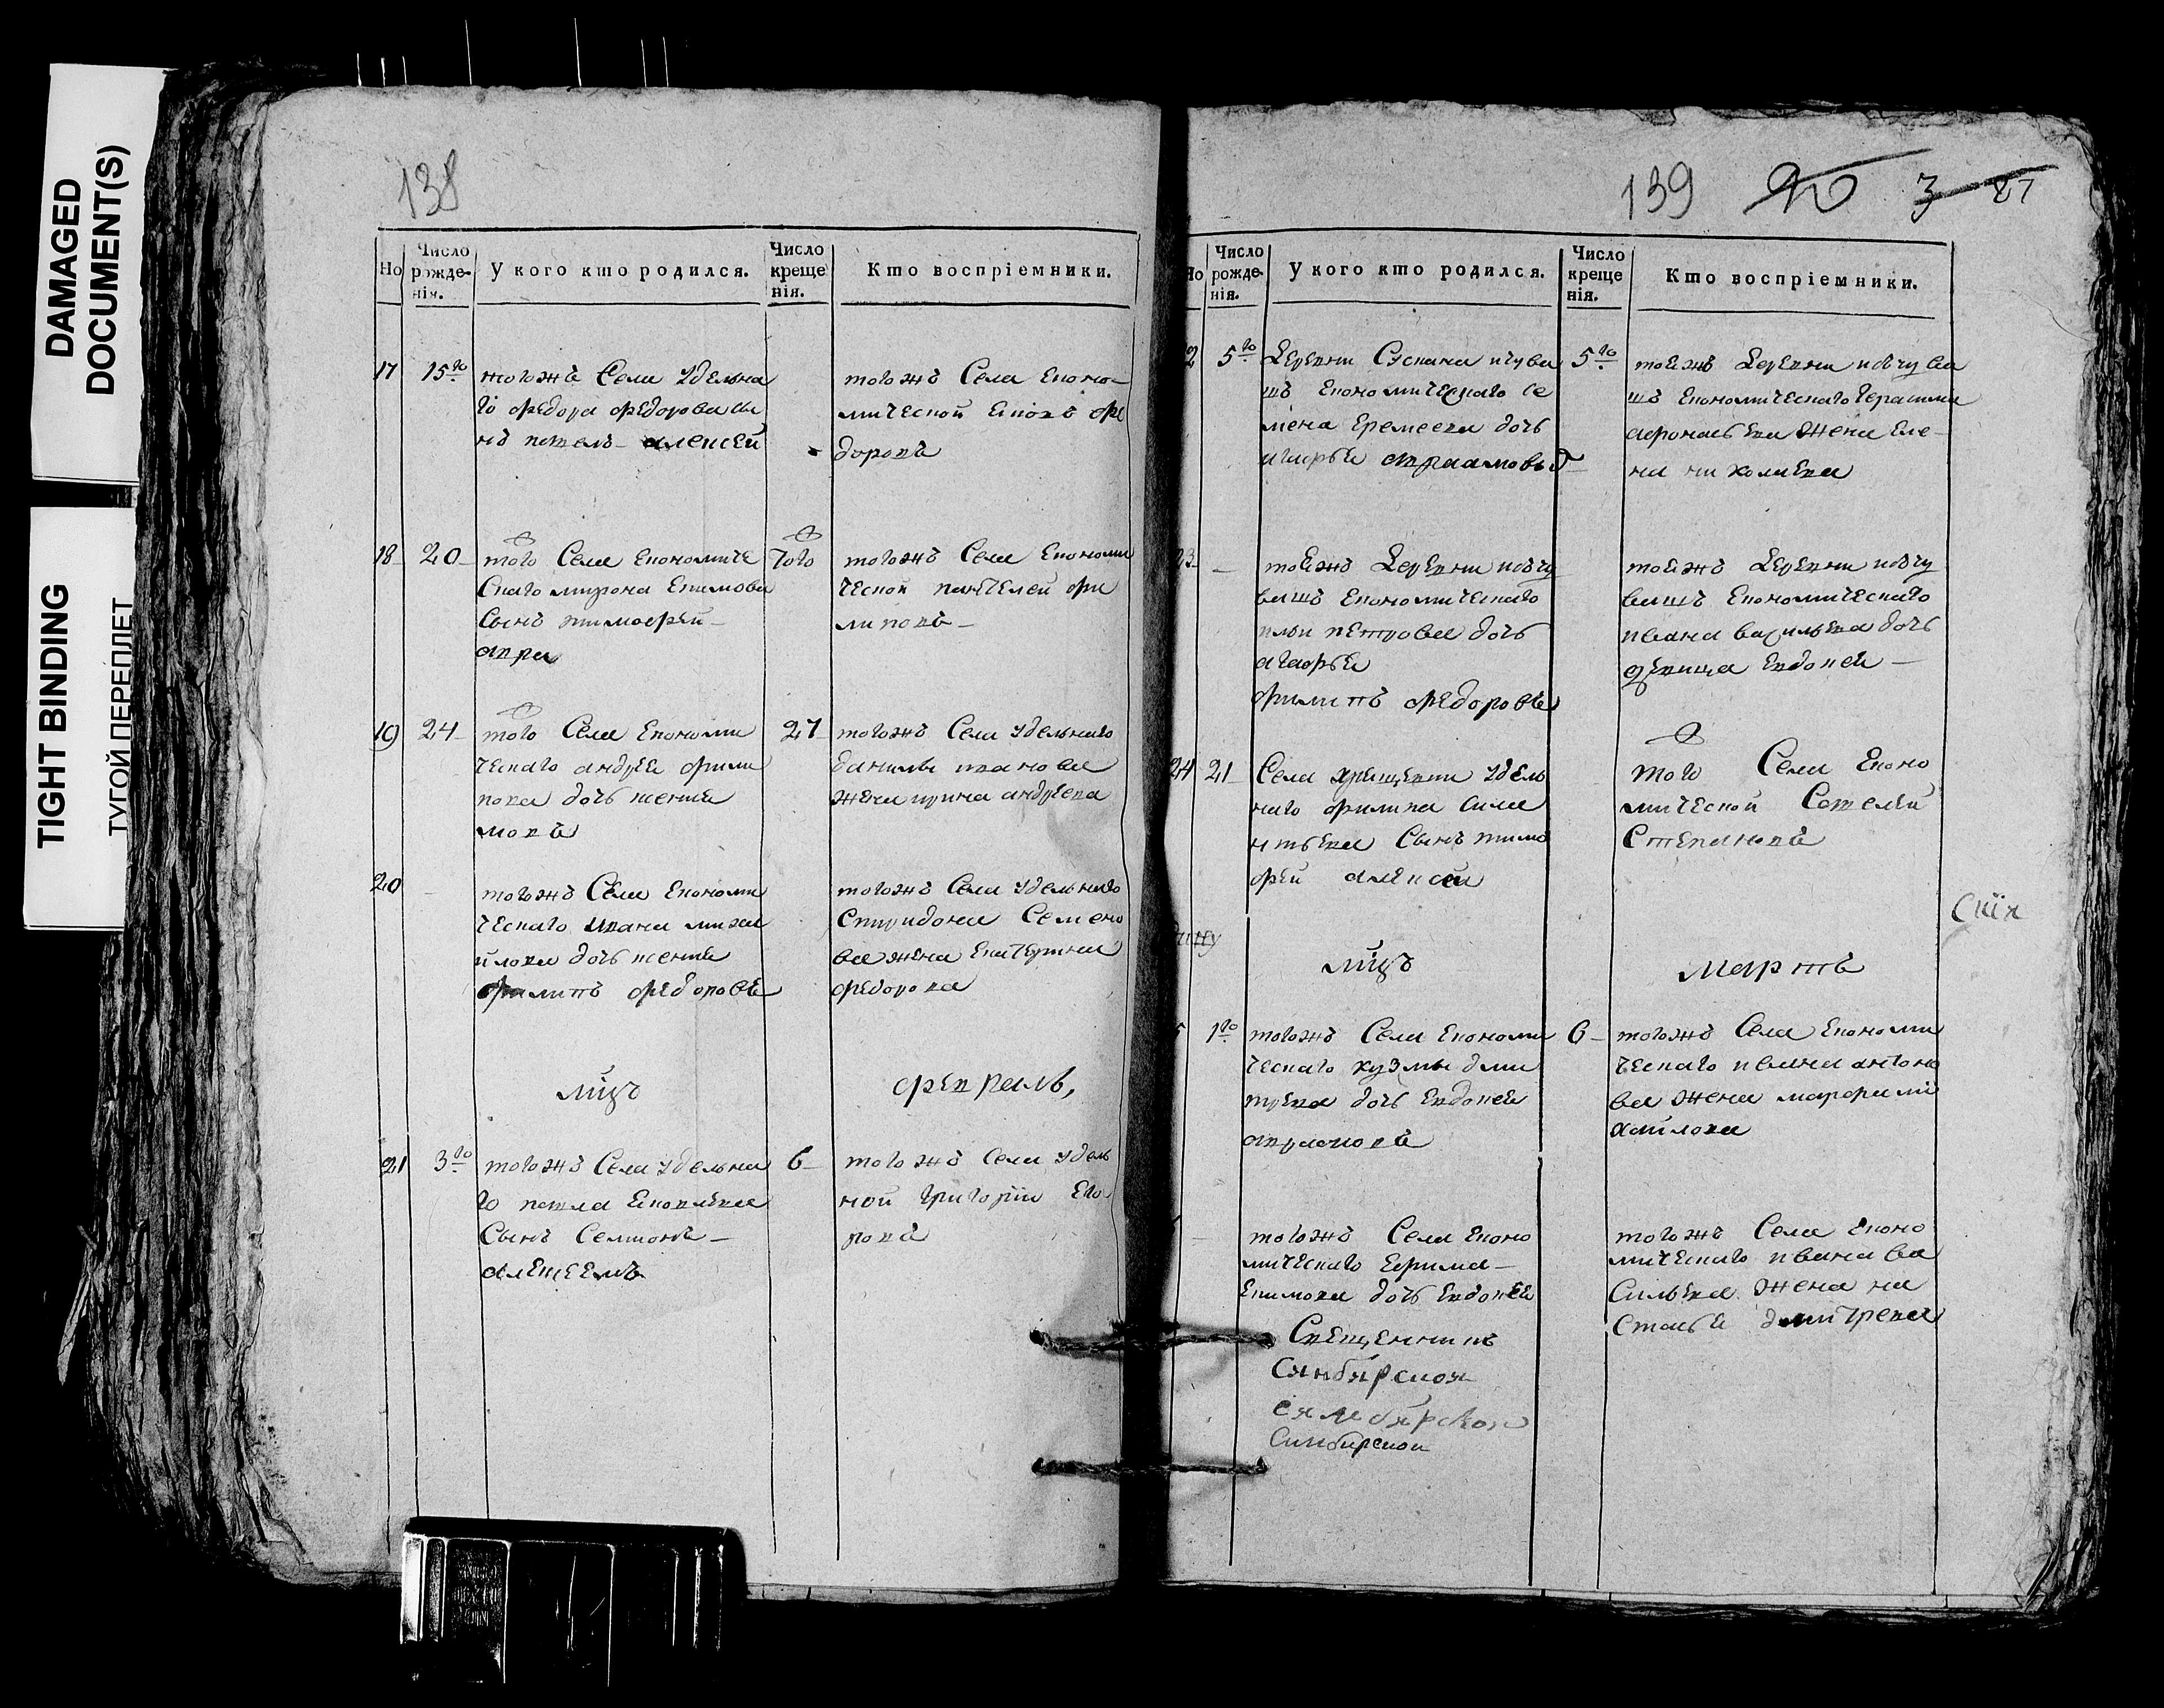 DAMAGED
DOCUMENT(S)
TIGHT BINDING
ТУГОЙ ПЕРЕПЛЕТ
138
Но
Число рожденія.
У кого кто родился.
Число крещенія.
Кто воспріемники.
17
15го
тогожъ Села Удельна
го федора федорова сы
нъ павелъ алексей
тогожъ Села Еконо-
мической
доровъ
18
20
того Села Економиче
скаго мирона Екимова
Сынъ тимофей
того
тогожъ Села Економи
ческой пантелей фи
липовъ
19
24
того Села Економи
ческаго андрея фили
пова дочь ксения
27
тогожъ Села Удельнаго
данилы иванова
жена ирина андреева
20
тогожъ Села Економи
ческаго ивана михаи
йлова дочь ксения
филипъ федоровъ
тогожъ Села Удельнаго
Спиридона Семено
ва жена Екатерина
федорова
мцъ
февраль,
21
3го
тогожъ Села Удельна
го павла Яковлева
Сынъ Семионъ
алексеемъ
6
тогожъ Села Удель
ной Григорій Его
ровъ
139
3
87
Но
Число рожденія.
У кого кто родился.
Число крещенія.
Кто воспріемники.
2
5го
Деревни Ичува
шъ Економическаго Се
мена Еремеева дочь
5го
тоежъ Деревни ичува
шъ Економическаго Герасима
афонасьева жена Еле-
на николаева
23
тоежъ Деревни ичу
вашъ Економическаго
ильи петрова дочь
агафья
филипъ федоровъ
тоежъ Деревни ичу
вашъ Економическаго
ивана васильева дочь
девица Евдокея
24
21
Села Удель
наго филипа Сила
нтьева Сынъ тимо
фей алексеи
того Села Еконо
мической Савелей
Степановъ
Скія
мцъ
мартъ
5
1го
тогожъ Села Економи
ческаго кузмы дми
треева дочь Евдокея
6
тогожъ Села Економи
ческаго ивана антоно
ва жена марфа ми
хайлова
тогожъ Села Еконо
мическаго Ефима
Екимова дочь Евдокея
тогожъ Села Еконо
мическаго ивана ва
сильева жена на
стасья дмитрева
Свещенникъ
Сянбярскоя
Сямбярскоя
Синбирскои